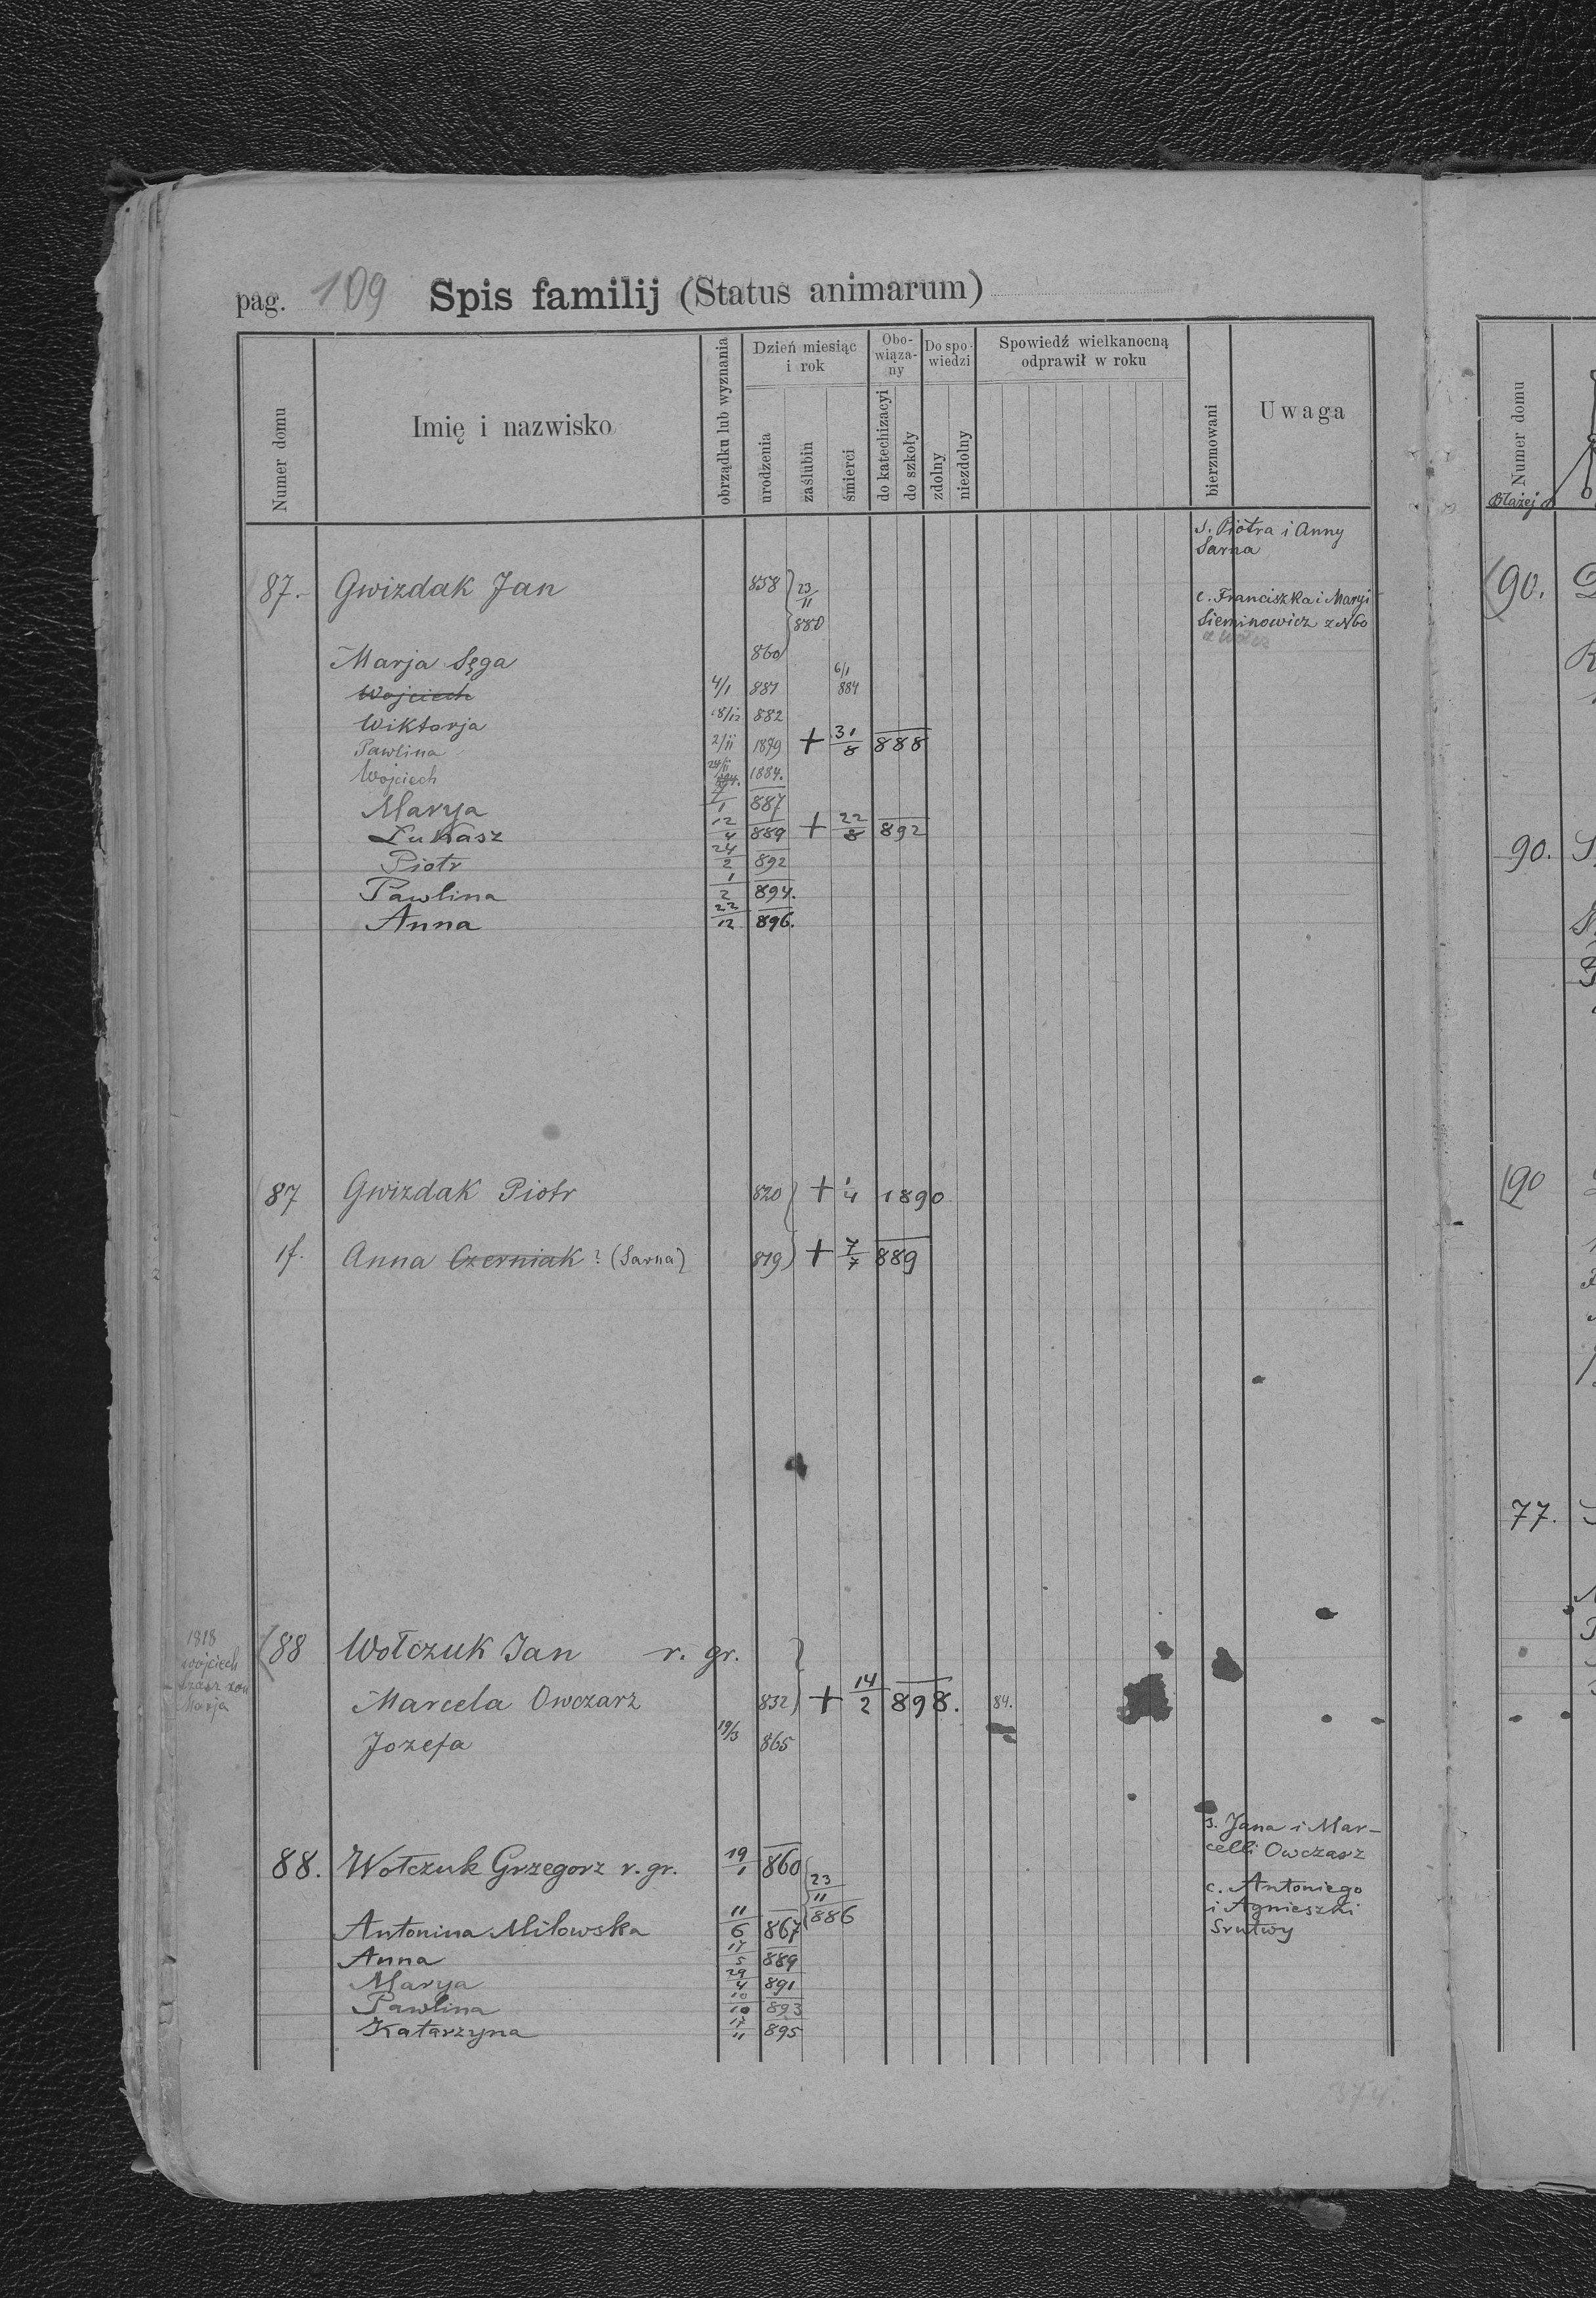 pag. 109 Spis familij (Status animarum)
Numer domu
Imię i nazwisko
obrządku lub wyznania
Dzień miesiąc i rok
urodzenia
zaślubin
śmierci
Obo-
wiąza-
ny
do katechizacyi
do szkoły
Do spo-
wiedzi
zdolny
niezdolny
Spowiedź wielkanocną
odprawił w roku
bierzmowani
Uwaga
s. Piotra i Anny
Sarna
87. Gwizdak Jan 858 23/11 880
c. Franciszka i Maryi
Sieminowicz z N 60
Marja Sęga 860
Wojciech 4/1 881 6/1 884
Wiktorja 18/12 882
Pawlina 2/11 1879 + 31/8 888
Wojciech 1884.
Marya 7/1 887
Łukasz 12/4 889 + 22/8 892
Piotr 24/2 892
Pawlina 1/2 894.
Anna 22/12 896.
87 Gwizdak Piotr 820 + 1/4 1890
1f. Anna Czerniak ? (Sarna) 819 + 7/7 889
1818
Wojciech
Marja
88 Wołczuk Jan r. gr.
Marcela Owczarz 832 + 14/2 898. 84.
Jozefa 19/3 865
s. Jana i Mar-
celli Owczarz
88. Wołczuk Grzegorz r. gr. 19/1 860 23/11 886
c. Antoniego
i Agnieszki
Srutwy
Antonina Miłowska 11/6 867
Anna 17/5 889
Marya 29/4 891
Pawlina 10/10 893
Katarzyna 17/11 895
374.
Numer domu
Błażej
90.
90.
90
77.